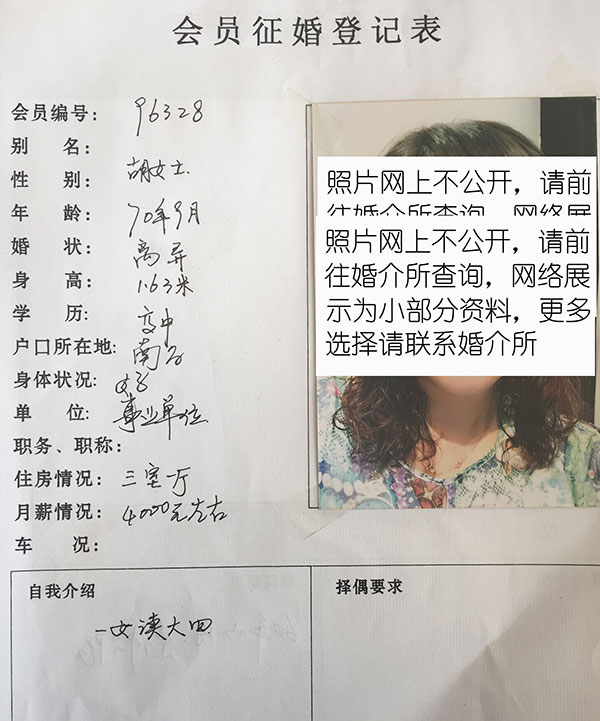 会员征婚登记表
会员编号: 96328
别 名:
性 别: 胡女士
年 龄: 70年9月
婚 状: 离异
身 高: 1.63米
学 历: 高中
户口所在地: 南谷
身体状况:
单 位: 事业单位
职务、职称:
住房情况: 三室一厅
月薪情况: 4000元左右
车 况:
照片网上不公开，请前
往婚介所查询，网络展
照片网上不公开，请前
往婚介所查询，网络展
示为小部分资料，更多
选择请联系婚介所
自我介绍
一女读大四
择偶要求